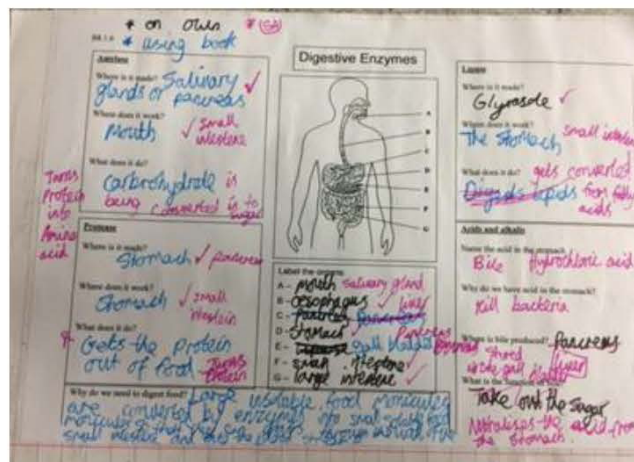 * on own * (SA)
* using book
Digestive Enzymes
Amylase
Where is it made? Salivary
glands or pancreas ✓
Where does it work?
Mouth ✓ small
intestene
What does it do?
Carbohydrate is
being converted is to sugar
Turns
Protein
into
Amino
acid
Protease
Where is it made?
Stomach ✓ pancreas
Where does it work?
Stomach ✓ small
What does it do?
Gets the protein
out of food Turns
Protein
A
B
C
D
E
F
G
Label the organs
A - mouth salivary gland
B - oesophagus ✓ liver
C - pancreas
D - Stomach ✓ Pancreas
E - gall bladder
F - small intestine ✓
G - large intestine ✓
Lipase
Where is it made?
Where does it work?
The stomach small
What does it do? gets converted
lipids from fatty
acids
Acids and alkalis
Name the acid in the stomach
Bile Hydrochloric acid
Why do we have acid in the stomach?
Kill bacteria
Where is bile produced? Pancreas
Stored
gall bladder liver
What is the function of bile?
Take out the sugar
the acid from
the stomach
Why do we need to digest food? Large insoluble food
are converted by enzymes
small intestine and